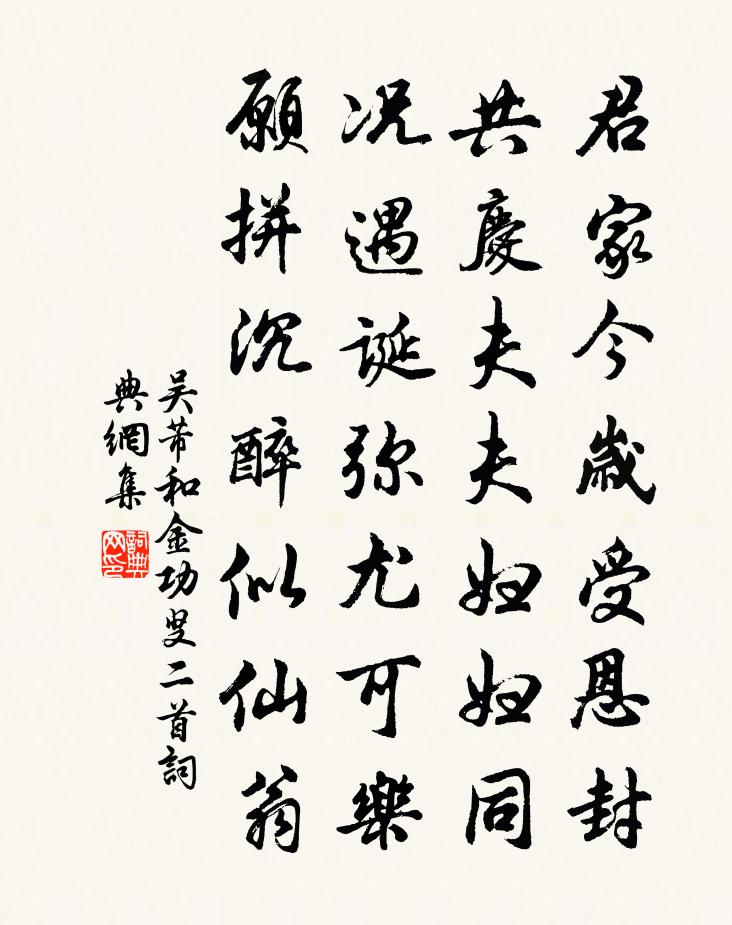 君家今歲受恩封
共慶夫夫妇妇同
况遇誕弥尤可樂
願拼沉醉似仙翁
吴芾和金功叟二首詞
典網集
詞典
网印